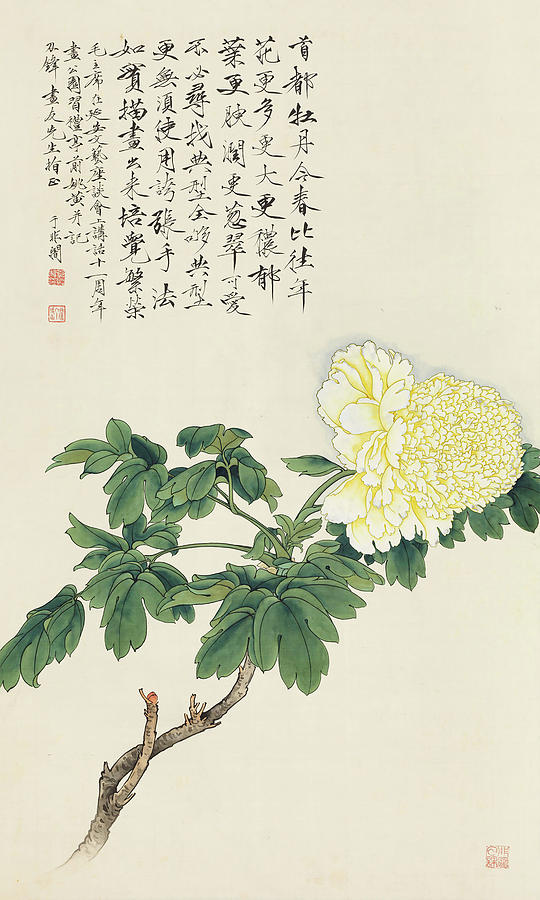 首都牡丹今春比往年
花更多更大更穠郁
葉更腴潤更葱翠可愛
不必尋找典型全夠典型
更無須使用誇張手法
如實描畫出来倍覺繁榮
毛主席在延安文藝座談會上講話十一周年
畫公園習禮亭前姚黃并記
畫友先生指正
于非闇